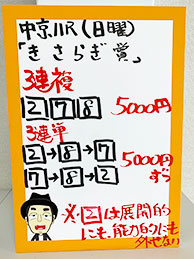 中京11R(日曜)
「きさらぎ賞」
3連複
2 7 8 5000円
3連単
2→8→7 5000円
7→8→2 ずつ
※・2は展開的
にも、能力的にも
外せない